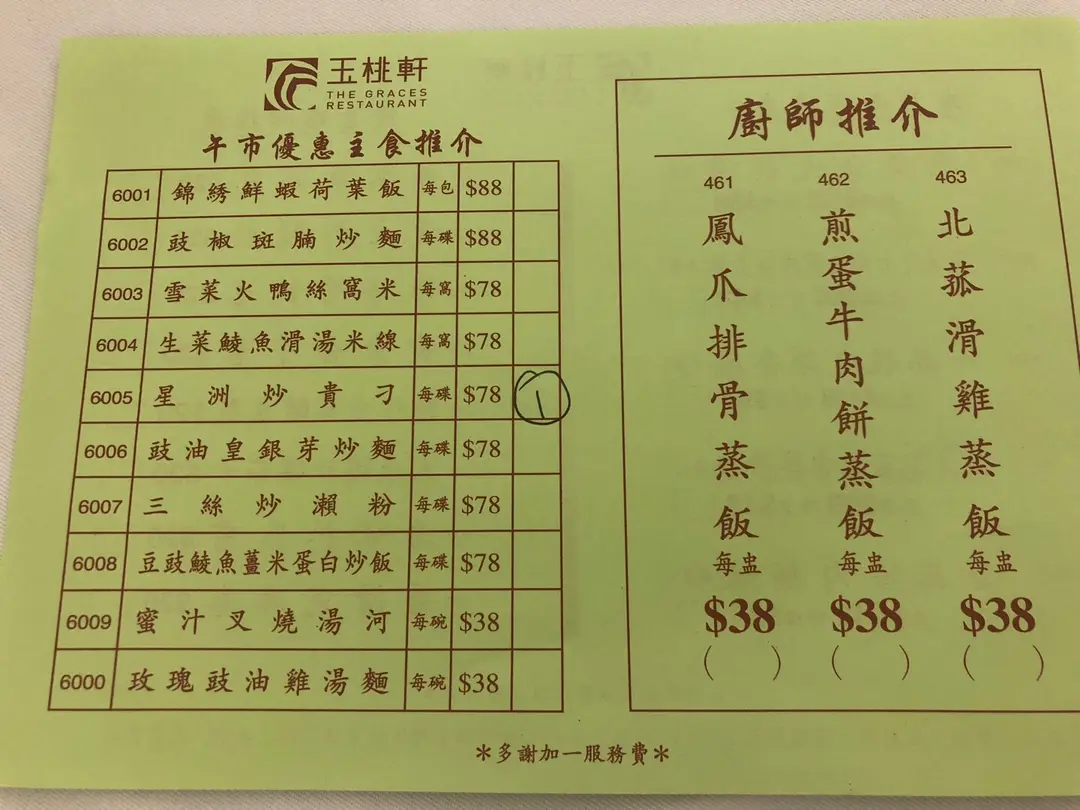 玉桃軒
THE GRACES
RESTAURANT
午市優惠主食推介
6001 錦綉鮮蝦荷葉飯 每包 $88
6002 豉椒斑腩炒麵 每碟 $88
6003 雪菜火鴨絲窩米 每窩 $78
6004 生菜鯪魚滑湯米線 每窩 $78
6005 星洲炒貴刁 每碟 $78 1
6006 豉油皇銀芽炒麵 每碟 $78
6007 三絲炒瀨粉 每碟 $78
6008 豆豉鯪魚薑米蛋白炒飯 每碟 $78
6009 蜜汁叉燒湯河 每碗 $38
6000 玫瑰豉油雞湯麵 每碗 $38
廚師推介
461 鳳爪排骨蒸飯 每盅 $38 ( )
462 煎蛋牛肉餅蒸飯 每盅 $38 ( )
463 北菰滑雞蒸飯 每盅 $38 ( )
*多謝加一服務費*